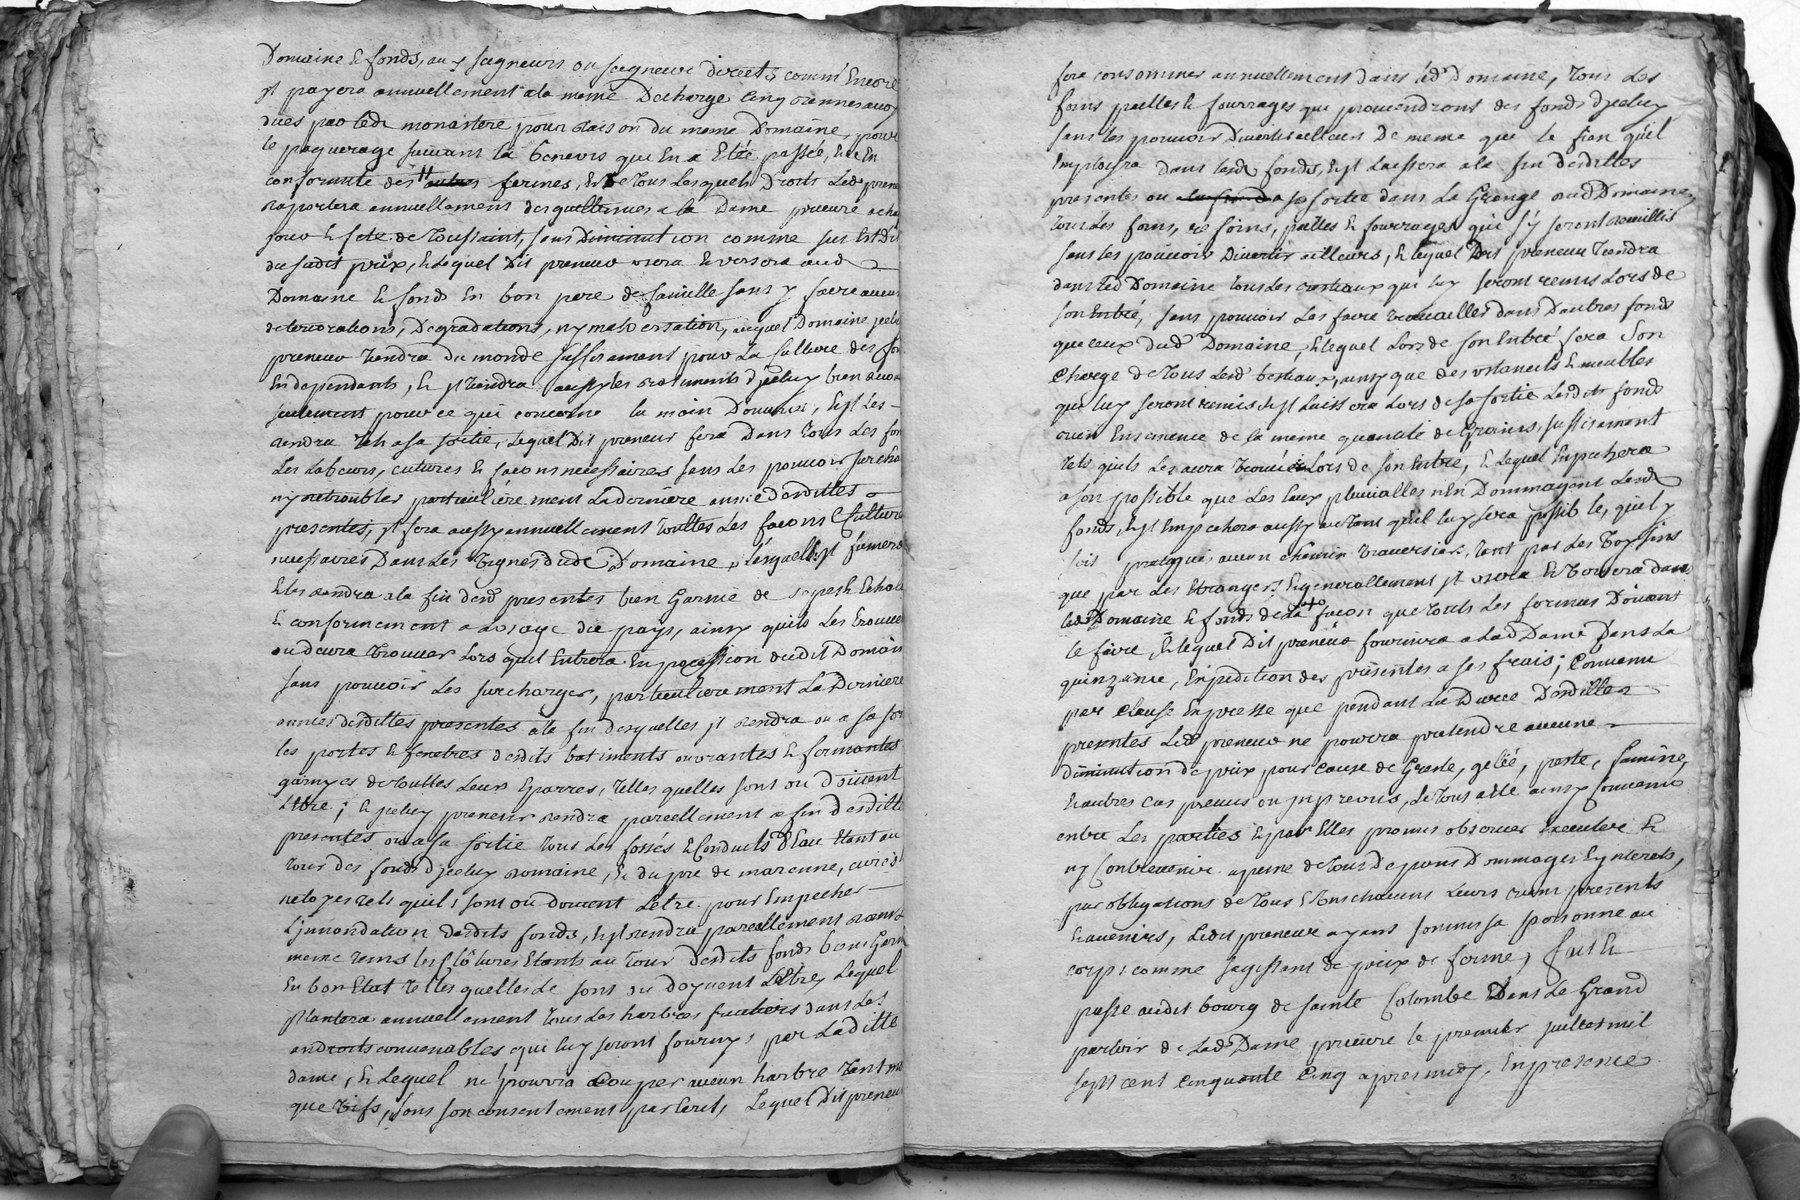 Domaine & fonds, aux seigneurs ou seigneur directs comm' Encore
Jl payera annuellement ala meme Decharge Cinq
dües par ledt monastere pour Raison du meme Domaine, pour
le paquerage suivant la benevis qui En a Eté passée, & En
conformité des autres fermes, & De tous Lesquels Droits Led preneur
Raportera annuellement des quittances a la Dame prieure a cha
jour & fete de Toussaint, sans Diminution comme sus Est Dit
du susdit prix, & Lequel Dit preneur usera & versera aud
Domaine & fonds En bon pere de famille sans y faire aucunes
deteriorations, Degradations, ny malversation, auquel Domaine jcelu
preneur tiendra du monde suffisament pour La Culture des fon
En dependants, & jl tiendra aussy les batiments d'jceluy bien
seulement pour ce qui concerne la main D'ouvrier, & jl Les
rendra tels a sa sortie, Lequel Dit preneur fera Dans tous Les fon
Les Labours, cultures & façons necessaires sans Les pouvoir surcha
ny retroubler particulière ment La derniere année desdittes
presentes, jl fera aussy annuellement touttes Les façons & Culture
necessaires Dans Les Vignes dudt Domaine, Lesquelles jl fumera
& Les rendra ala fin desd presentes bien Garnie de &
& conformement a L'usage du pays, ainsy qu'ils Les trouvera
ou devra trouver Lors quil Entrera En possession dudit Domain
sans pouvoir Les surcharger, particulierement La Derniere
années desdittes presentes a la fin desquelles jl rendra ou a sa sor
les portes & fenetres desdits batiments ouvrantes & fermantes
garnyes de touttes Leurs Eparres, telles quelles sont ou doivent
Etre; & jceluy preneur rendra pareillement a fin desditte
presentes ou a sa sortie tous Les fossés & Conduits D'Eau Etant au
tour des fonds d'jceluy Domaine, & du pré de marenne, curés
netoyes tels quils sont ou doivent Letre pour Empecher
L'jnnondation desdits fonds, & jl rendra pareillement
meme tems les Clôtures Etants au tour Desdits fonds bien Garni
En bon Etat telles quelles Le sont ou doyvent Letre, Lequel
plantera annuellement tous Les harbres fruitiers dans Les
androits convenables qui luy seront fournys par Laditte
dame, & Lequel ne pourra Couper aucun harbre tant mo
que Vifs, sans son consentement par Ecrit, Lequel Dit preneur
fera consommer annuellement dans led Domaine, tous Les
foins pailles & fourrages qui proviendront des fonds d'jceluy
sans les pouvoir Divertir ailleurs De meme que le fian quil
Employra dans lesdt fonds, & jl Laissera ala fin desdittes
presentes ou a sa sortie dans La Grange aud Domaine,
tous Les foins, re foins, pailles & fourrages qui s'y seront
sans les pouvoir Divertir ailleurs, & lequel Dit preneur tiendra
dans led Domaine tous Les bestiaux qui luy seront remis Lors de
son Entré, sans pouvoir Les faire travailler dans D'autres fonds
que ceux dud Domaine, & lequel Lors de son Entré sera Son
Charge De tous Lesd bestiaux, ainsy que des ustancils & meubles
qui luy seront remis & jl Laissera Lors de sa sortie Lesdits fonds
bien Ensemencé de la meme quantité de Grains, suffisament
tels quils Les aura trouvé Lors de son Entre, & Lequel Empechera
a son possible que Les Eaux pluvialles n'En Dommagent Lesd
fonds, & jl Empechera aussy autant quil luy sera possible, quil y
soit pratiqué aucun chemin traversier, tant par Les Voysins
que par des Etrangers; & generallement jl usera & versera dans
led Domaine & fonds de La façon que touts Les fermiers Doivent
le faire, & lequel Dit preneur fournira a Lad Dame Dans La
quinzaine, Expedition des présentes a ses frais; Convenu
par Clause Expresse que pendant La Durée Desdittes
presentes Led preneur ne pourra pretendre aucune
Diminution de prix pour Cause de Grele, gelée, peste, famine,
& autres Cas prevus ou jmprevus, Le tous a Eté ainsy Convenu
entre Les parties & par Elles promis observer Executer &
ny Contrevenir a peine de tous Depans Dommages & jnterets,
par obligations de tous & Uns chacuns Leurs biens presents
& avenirs, Ledit preneur ayant soumis sa personne au
corps comme sagissant de prix de ferme, fait &
passé audit bourg de sainte Colombe Dans Le Grand
parloir de Lad Dame prieure le premier juillet mil
sept cent Cinquante Cinq apres midy, En presence